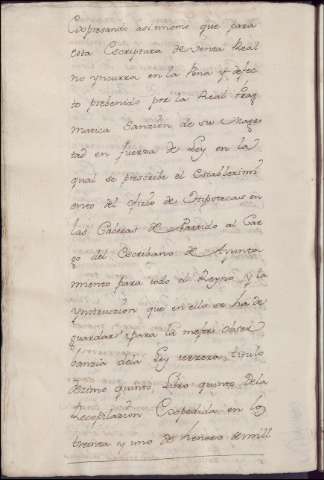 Expresando asimismo que para
esta Escriptura de venta Real
no yncurra en la Pena y defec
to prebenido por la Real Prag
matica Sanzion de su Mages
tad en fuerza de Ley en la
qual se prescribe el Establezimi
ento del ofizio de Hipotecas en
las Cabezas de Partido al Car
go del Escribano de Ayunta
miento para todo el Reyno, y la
ynstruzion que en ella se ha de
guardar para la mejor obser
banzia de la Ley terzera, titulo
dezimo quinto, Libro quinto de la
Recopilazion Expedida en los
treinta y uno de henero de mill